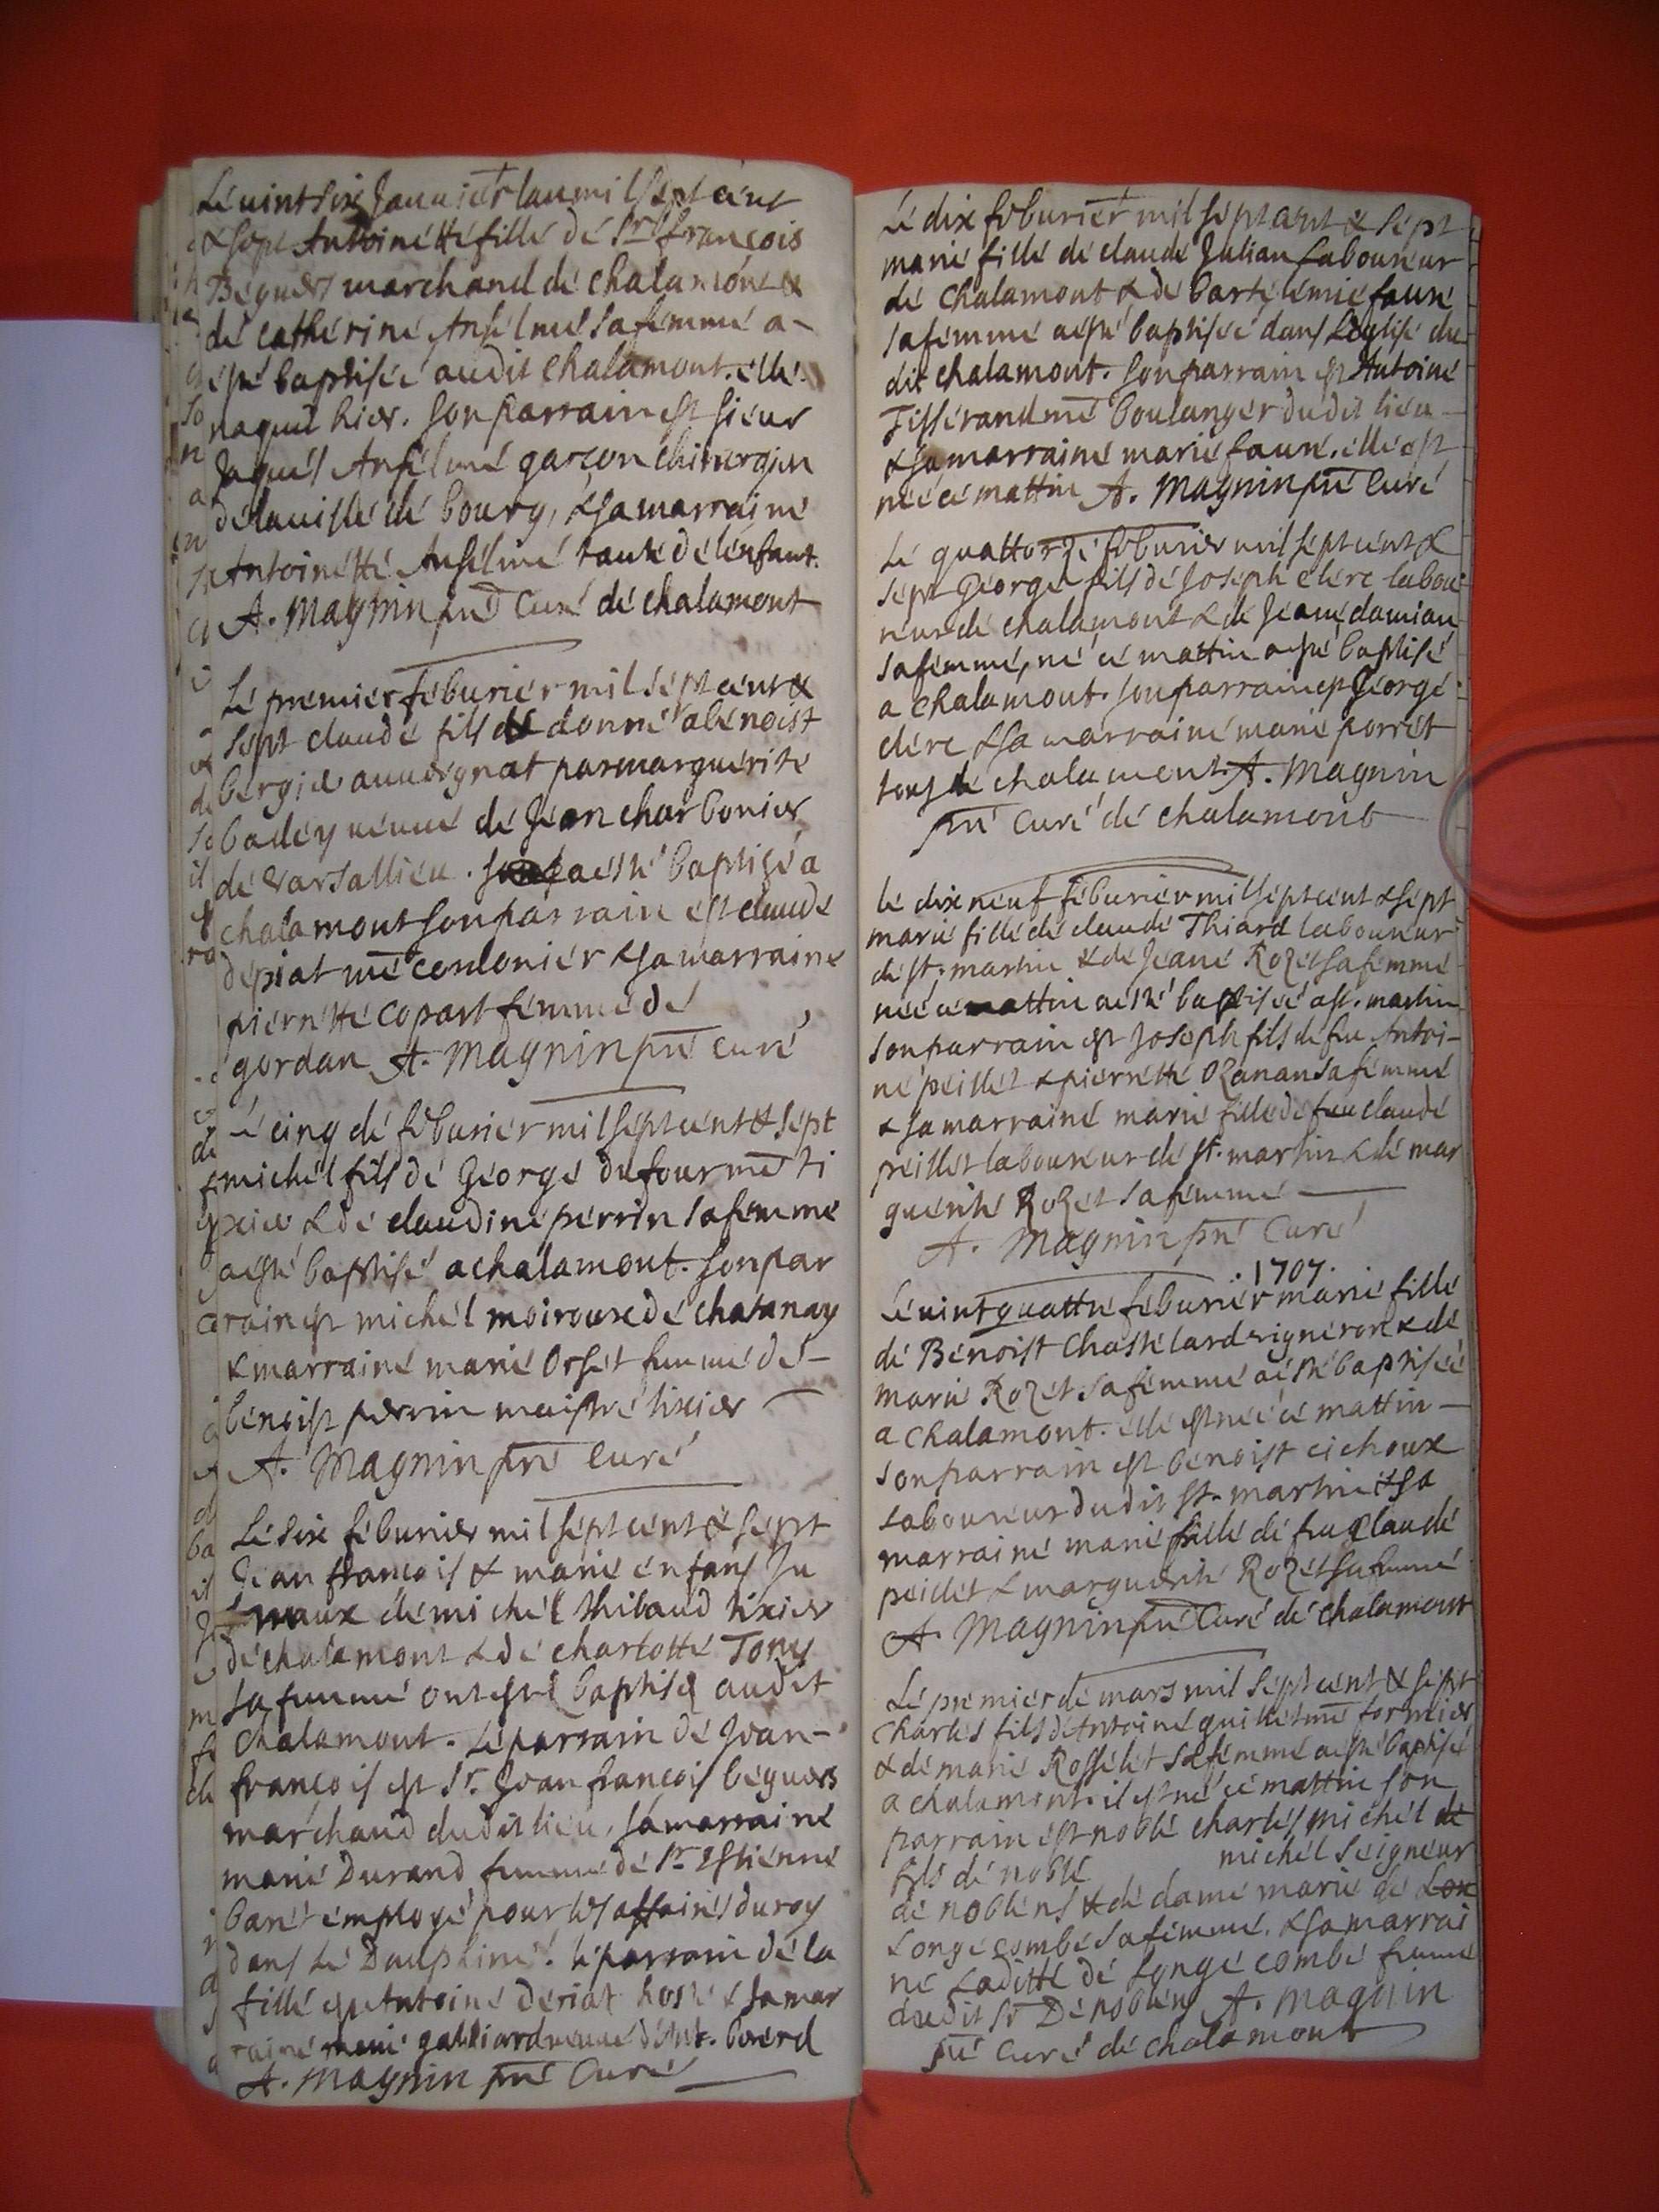 Lé vint six Janvier lan mil sept cent
& sept Antoinétté fillé dé Sr françois
Béguers marchand dé chalamónt &
dé cathériné Ansélmé sa fémmé a-
ésté baptiséé audit chalamont. éllé
naquit hier. Son parrain est sieur
Jaqués Ansélmé garçon chirurgien
dé la villé dé bourg, & sa marrainé
Antoinétté Ansélmé tanté dé lénfant.
A. Magnin pré Curé dé chalamont
Lé prémiér féburiér mil sépt cént &
sépt claudé fils dé donné a bénoist
bergier auvérgnat par marguérité
badéy véuvé dé Jéan charbonier
dé varsalliéu. a ésté baptizé a
chalamont son parrain ést claudé
dépiat mé cordoniér & sa marrainé
piérrétté copart fémmé dé
gordan A. Magnin pré curé
Lé cinq dé féburiér mil sépt cént & sépt
michél fils dé Géorgé dufour mé ti
xier & dé claudiné pérrin sa fémmé
a ésté baptisé a chalamont. son par
rain est michél moiroux dé chatanay
& marrainé marié Orsét fémmé dé-
bénoist pérrin maistré tixier
A. Magnin pré curé
Lé six féburier mil sépt cént & sépt
Jéan françois & marié énfans Ju
maux dé michél thibaud tixier
dé chalamont & dé charlotté Tony
sa fémmé ont ésté baptisés audit
chalamont. Lé parrain dé Jéan-
françois est Sr. Jéan françois béguers
marchand dudit liéu, sa marrainé
marié Durand fémmé dé Sr Estiénné
banét employé pour lés affairés du roy
dans Lé Dauphiné. lé parrain dé la
fillé est Antoiné dériat hosté & sa mar
rainé marié galliard véuvé d'Ant. bovérd
A. Magnin pré Curé
Lé dix féburiér mil sépt cént & sépt
marié fillé dé claudé Julian Labouréur
dé chalamont & dé bartélémié fauré
sa fémmé a ésté baptiséé dans Léglisé du
dit chalamont. son parrain est Antoiné
Tissérand mé boulangér dudit liéu
& sa marrainé marié fauré. éllé est
néé cé mattin A. Magnin pré Curé
Lé quattorzé féburier mil sépt cént &
sépt Géorgé fils dé Joséph clérc labou
réur dé chalamont & dé Jéané damian
sa fémmé, né cé mattin a ésté baptisé
a chalamont. son parrain est Géorgé
clérc & sa marrainé marié porrét
tous dé chalamont. A. Magnin
pré curé dé chalamont
lé dix neuf féburiér mil sépt cént & sépt
marié fillé dé claudé Thiard labouréur
dé st. martin & dé Jéané Rozét sa fémmé
néé cé mattin a ésté baptiséé a st. martin
son parrain est Joséph fils dé feu Antoi-
né péillét & piérrétté Ozanan sa fémmé
& sa marrainé marié fillé dé feu claudé
péillét labouréur dé st. martin & dé mar
guérité Rozét sa fémmé
A. Magnin pré Curé
. 1707.
Lé vint quattré féburiér marié fillé
dé Bénoist Chastélard vignéron & dé
marié Rozét sa fémmé a ésté baptiséé
a chalamont. éllé est néé cé mattin
son parrain est bénoist cichoux
labouréur dudit st. martin & sa
marrainé marié fillé dé feu claudé
péillét & marguérité Rozét sa fémmé
A. Magnin pré Curé dé chalamont
Lé prémiér dé mars mil sépt cént & sépt
charlés fils d'Antoiné guillét mé cormiér
& dé marié Rossélét sa fémmé a ésté baptisé
a chalamont. il est né cé mattin son
parrain ést noblé charlés michél dé
fils dé noblé michél séignéur
dé nobléns & dé damé marié dé Lon
Longécombé sa fémmé. & sa marrai
né Laditté dé Longé combé fémmé
dudit Sr Dé nobléns A. Magnin
pré Curé dé chalamont